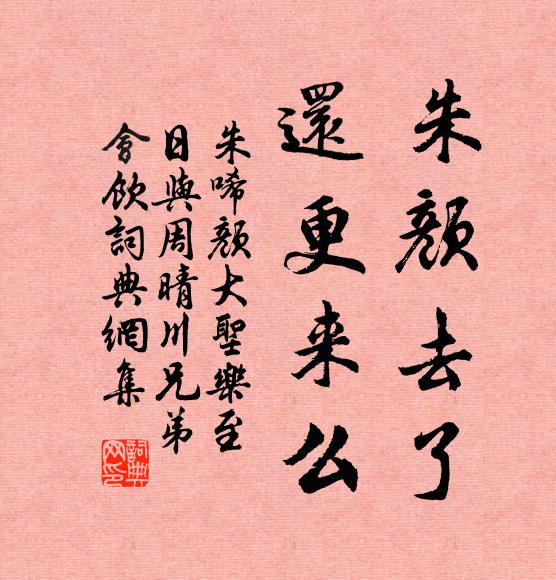 朱顏去了
還更来么
朱唏顏大聖樂至
日與周晴川兄弟
會飲詞典網集
詞典網印